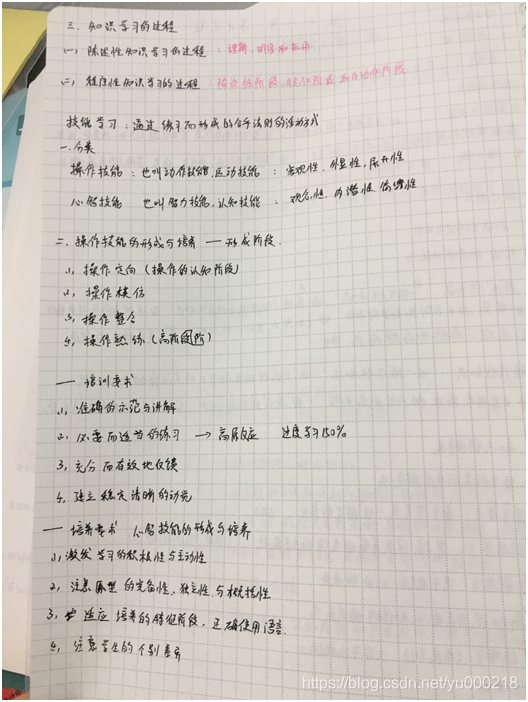 三. 知识学习的过程
(一) 陈述性知识学习的过程 : 理解、巩固和应用
(二) 程序性知识学习的过程 陈述性阶段、转化阶段和自动化阶段
技能学习 : 通过练习而形成的合乎法则的活动方式
一. 分类
操作技能 : 也叫动作技能、运动技能 : 客观性、外显性、展开性
心智技能 也叫智力技能、认知技能 : 观念性、内潜性、简缩性
二. 操作技能的形成与培养 — 形成阶段.
1, 操作定向 (操作的认知阶段)
2, 操作模仿
3, 操作整合
4, 操作熟练 (高阶阶)
— 培训要求
1, 准确的示范与讲解
2, 必要而适当的练习 → 高原反应 过度学习150%
3, 充分而有效地反馈
4, 建立稳定清晰的动觉
— 培养要求 心智技能的形成与培养
1, 激发学习的积极性与主动性
2, 注意原型的完备性, 独立性与概括性
3, 适应培养的特征阶段, 正确使用语言.
4, 注意学生的个别差异
https://blog.csdn.net/yu000218